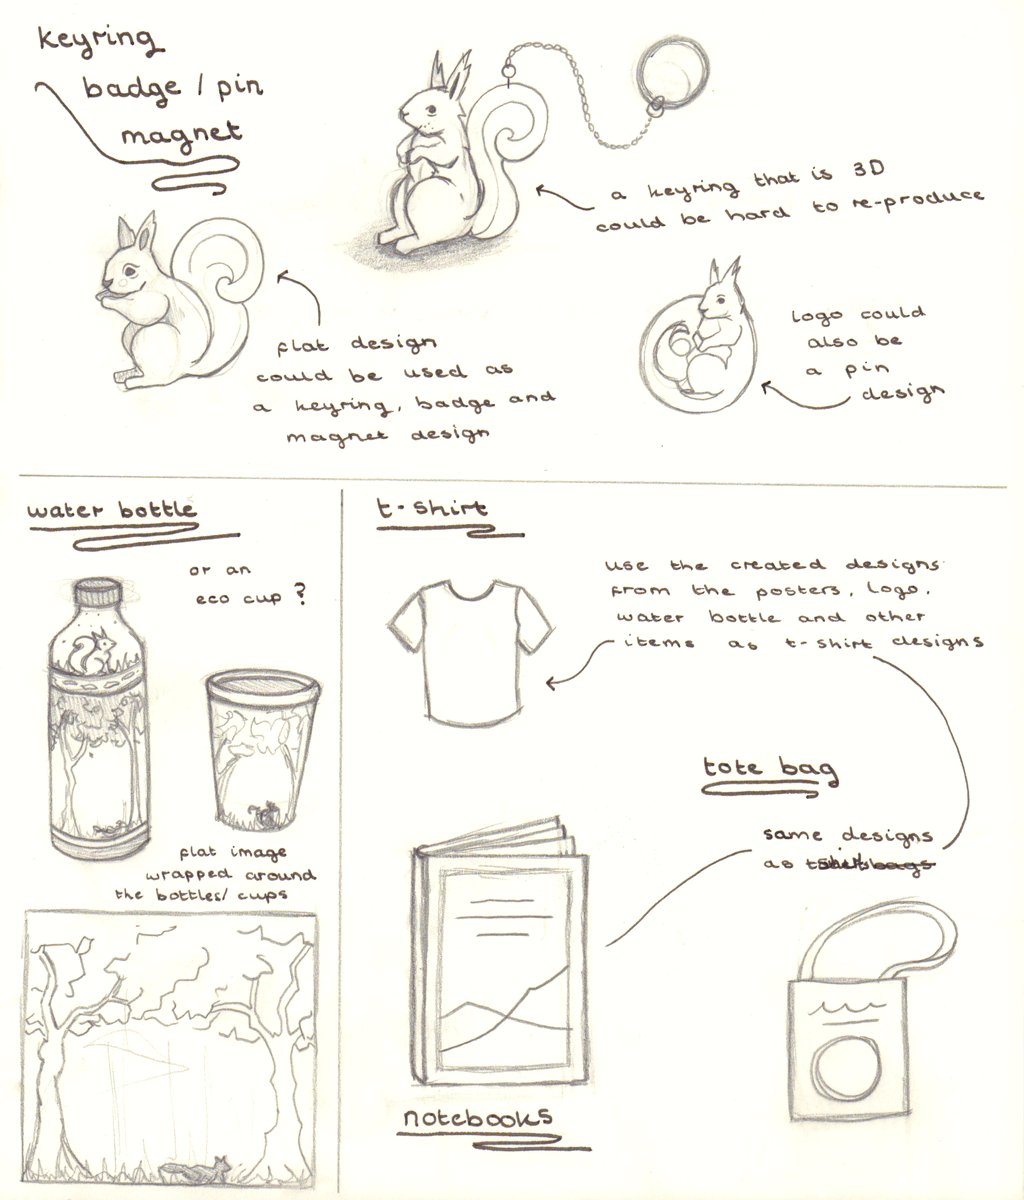 keyring
badge / pin
magnet
a keyring that is 3D
could be hard to re-produce
flat design
could be used as
a keyring, badge and
magnet design
logo could
also be
a pin
design
water bottle
or an
eco cup?
flat image
wrapped around
the bottles/ cups
t-shirt
use the created designs
from the posters, logo,
water bottle and other
items as t-shirt designs
tote bag
same designs
as
notebooks